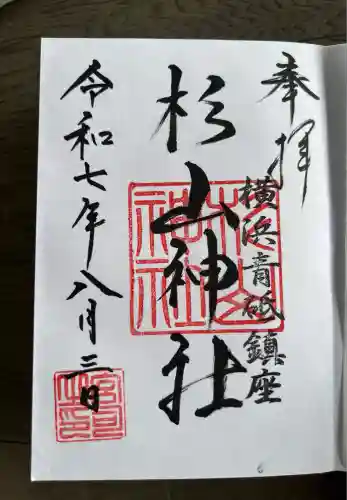 奉拝
横浜青砥鎮座
杉山神社
令和七年八月三日